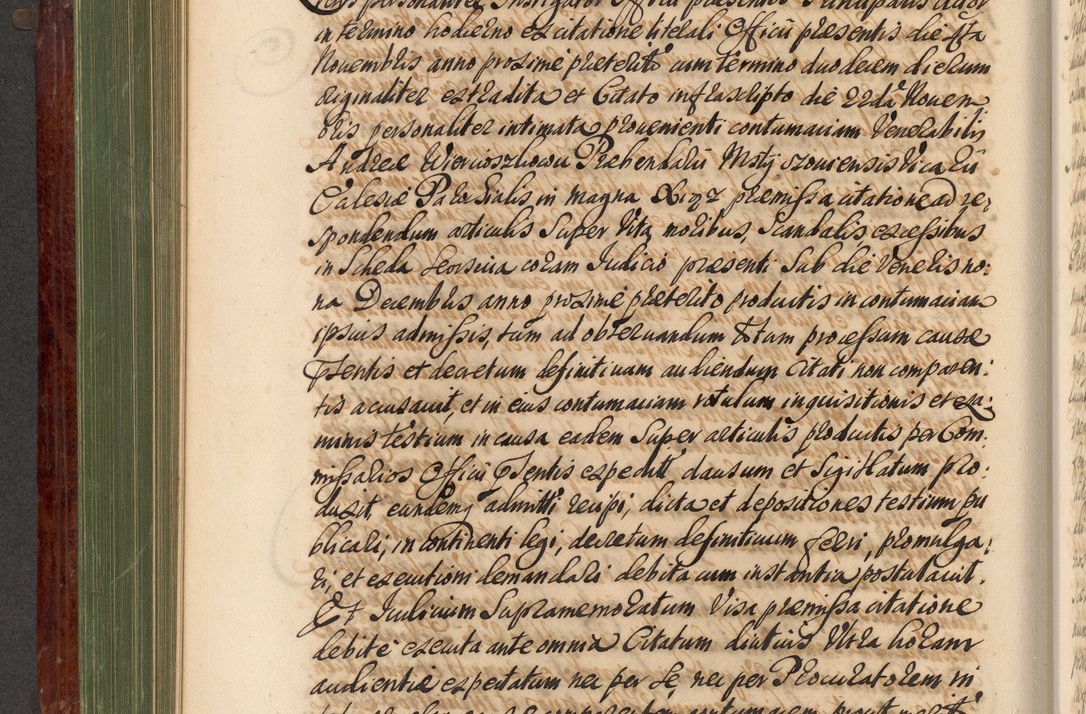 personaliter Instigator Officii præsentis Principalis Actor
in termino hodierno ex citatione literali Officii præsentis die
Nouembris anno proxime præterito cum termino duodecem dierum
originaliter extradita et Citato infrascripto die 22da Nouem
bris personaliter intimata prouenienti contumaciam Venerabilis
Andreæ Præbendarii Vicarii
Ecclesiæ Parochialis in magna præmissa citatione ad re:
spondendum articulis Super Vita moribus, Scandalis excessibus
in Scheda seorsiua coram Iudicio præsenti Sub die Veneris no:
na Decembris anno proxime præterito productis in contumaciam
ipsius admissis, tum ad obseruandum totum processum causæ
Psentis et decretum definitiuum audiendum Citati non comparen:
tis accusauit, et in eius contumaciam rotulum inquisitionis et exa:
minis testium in causa eadem Super articulis productis per Com:
missarios Officii Psentis expedit clausum et Sigillatum pro:
duxit, eundemq admitti recipi, dicta et depositiones testium pu
blicari, in continenti legi, decretum definitiuum ferri, promulga:
ri, et executioni demandari debita cum instantia postulauit.
Et Iudicium Supramemoratum Visa præmissa citatione
debite executa ante omnia Citatum diutius Vltra horam
audientiæ expectatum nec per Se, nec per Procuratorem in